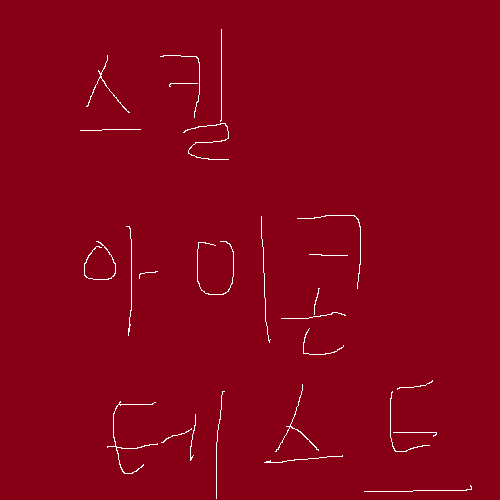 스킬
아이콘
테스트